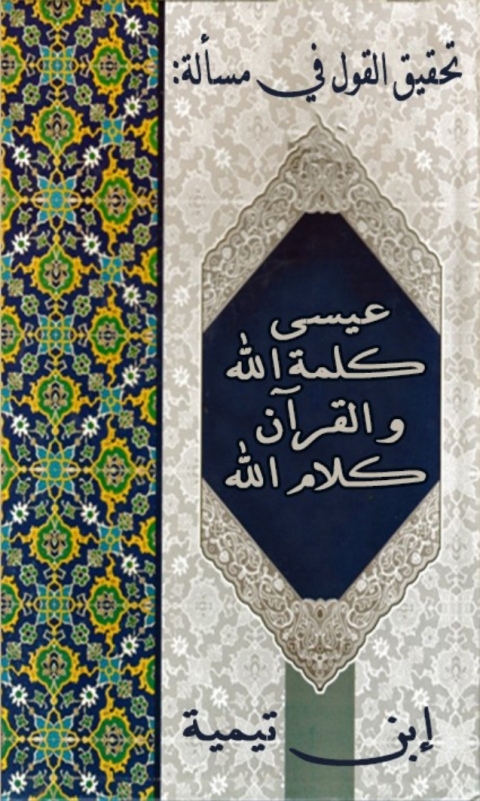 تحقيق القول في مسألة:
عيسى
كلمة الله
والقرآن
كلام الله
إبن تيمية